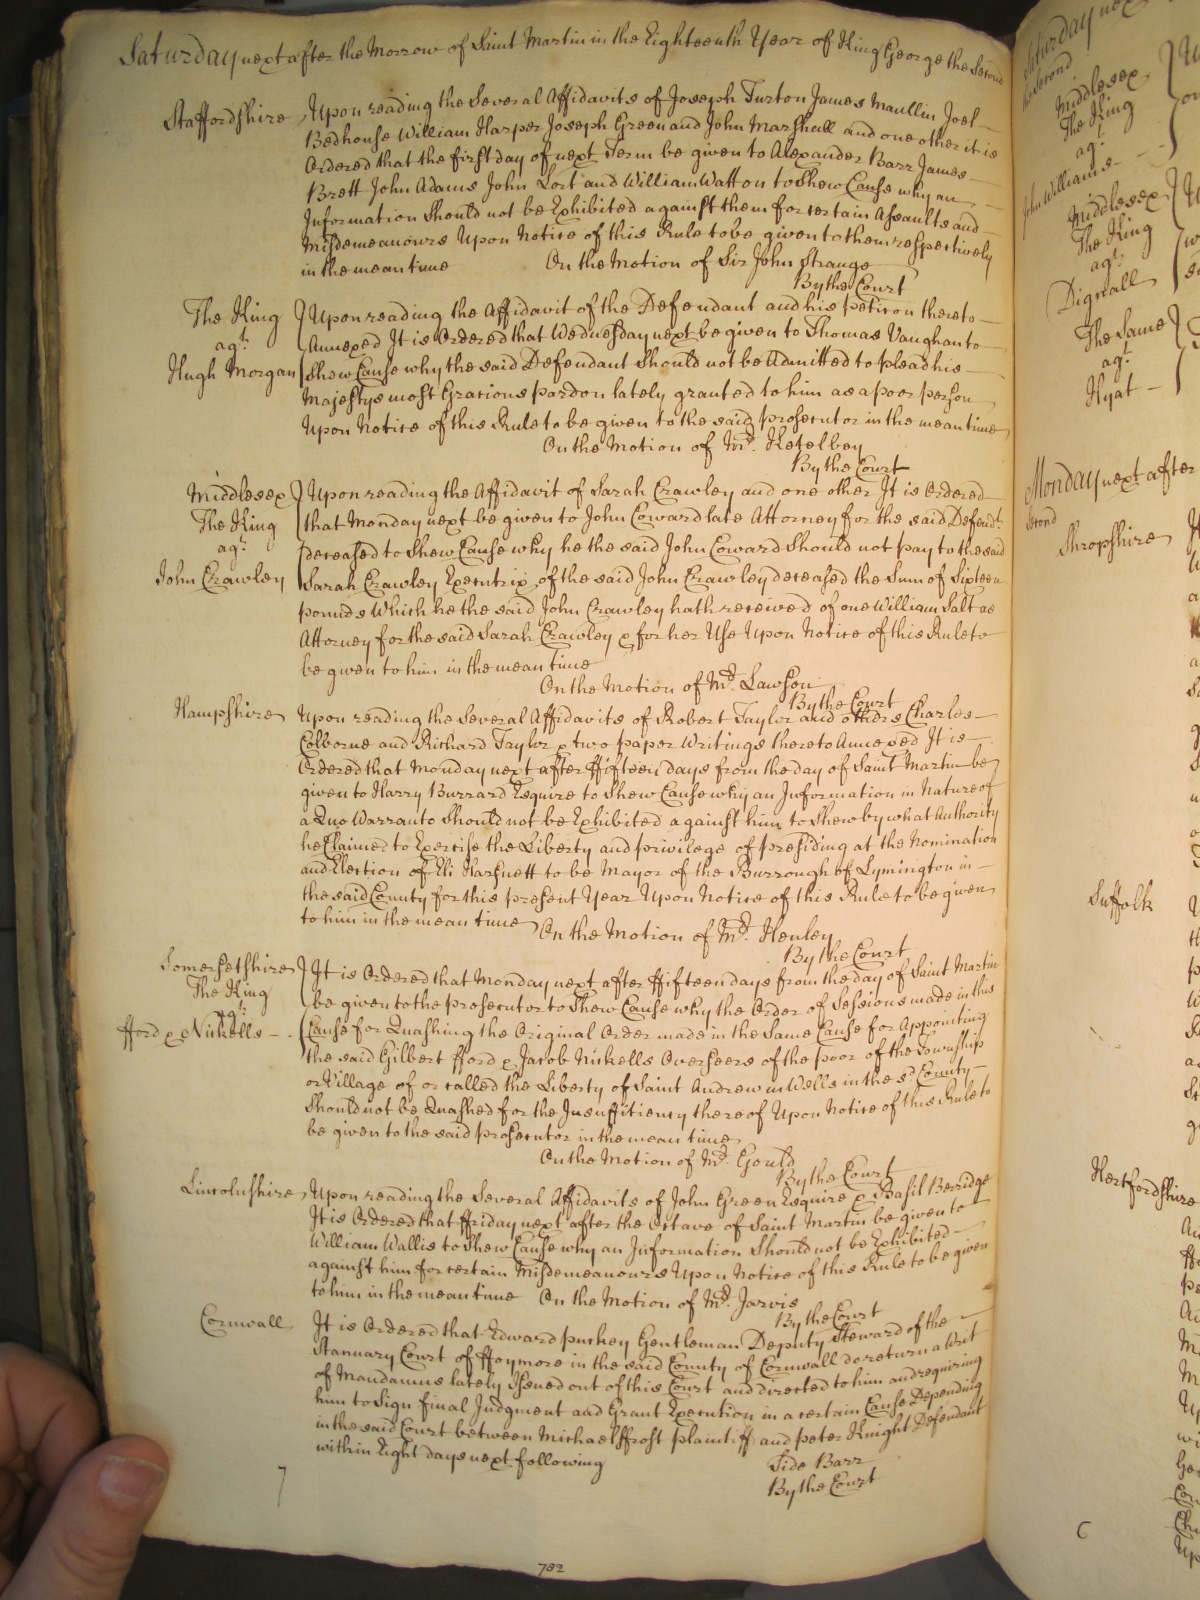 Saturday next after the Morrow of Saint Martin in the Eighteenth Year of King George the Second
Staffordshire Upon reading the Several Affidavits of Joseph Turton James Maullin Joel
Bedhouse William Harper Joseph Green and John Marshall and one other it is
Ordered that the first day of next Term be given to Alexander Barr James
Brett John Adams John Lort and William Watton to Shew Cause why an
Information Should not be Exhibited against them for certain Assaults and
Misdemeanours Upon Notice of this Rule to be given to them respectively
in the mean time On the Motion of Sir John Strange
By the Court
The King Upon reading the Affidavit of the Defendant and his petition thereto
agt. Annexed It is Ordered that Wednesday next be given to Thomas Vaughan to
Hugh Morgan Shew Cause why the said Defendant Should not be Admitted to plead his
Majestys most Gracious pardon lately granted to him as a poor person
Upon Notice of this Rule to be given to the said prosecutor in the mean time
On the Motion of Mr. Ketelbey
By the Court
Middlesex Upon reading the Affidavit of Sarah Crawley and one other It is Ordered
The King that Monday next be given to John Coward late Attorney for the said Defendt.
agt. deceased to Shew Cause why he the said John Coward Should not pay to the said
John Crawley Sarah Crawley Executrix of the said John Crawley deceased the Sum of Sixteen
pounds Which he the said John Crawley hath received of one William Salt as
Attorney for the said Sarah Crawley & for her Use Upon Notice of this Rule to
be given to him in the mean time
On the Motion of Mr. Lawson
By the Court
Hampshire Upon reading the Several Affidavits of Robert Taylor and others Charles
Colborne and Richard Taylor & two paper Writings thereto Annexed It is
Ordered that Monday next after ffifteen days from the day of Saint Martin be
given to Harry Burrard Esquire to Shew Cause why an Information in Nature of
a Quo Warranto Should not be Exhibited against him to Shew by what Authority
he Claimed to Exercise the Liberty and privilege of presiding at the Nomination
and Election of Eli Harsnett to be Mayor of the Burrough of Lymington in
the said County for this present Year Upon Notice of this Rule to be given
to him in the mean time On the Motion of Mr. Henley
By the Court
Somersetshire It is Ordered that Monday next after ffifteen days from the day of Saint Martin
The King be given to the prosecutor to Shew Cause why the Order of Sessions made in this
agt.
fford & Nickells Cause for Quashing the Original Order made in the Same Cause for Appointing
the said Gilbert fford & Jacob Nickells Overseers of the poor of the Township
or Village of or called the Liberty of Saint Andrew in Wells in the sd. County
Should not be Quashed for the Insuffitiency thereof Upon Notice of this Rule to
be given to the said prosecutor in the mean time
On the Motion of Mr. Gould
By the Court
Lincolnshire Upon reading the Several Affidavits of John Green Esquire & Basil Berridge
It is Ordered that ffriday next after the Octave of Saint Martin be given to
William Wallis to Shew Cause why an Information Should not be Exhibited
against him for certain Misdemeanours Upon Notice of this Rule to be given
to him in the mean time On the Motion of Mr. Jarvis
By the Court
Cornwall It is Ordered that Edward puckey Gentleman Deputy Steward of the
Stannary Court of ffoymore in the said County of Cornwall do return a Writ
of Mandamus lately Issued out of this Court and directed to him and requiring
him to Sign final Judgment and Grant Execution in a certain Cause Depending
in the said Court between Michael ffrost plaintiff and peter Knight Defendant
within Eight days next following
Side Barr
By the Court
782
Saturday next
the Second
Middlesex
The King
agt.
John Williams
Middlesex
The King
agt.
Dignall
The Same
agt.
Hyat
Monday next after
Second
Shropshire
Suffolk
Hertfordshire
C